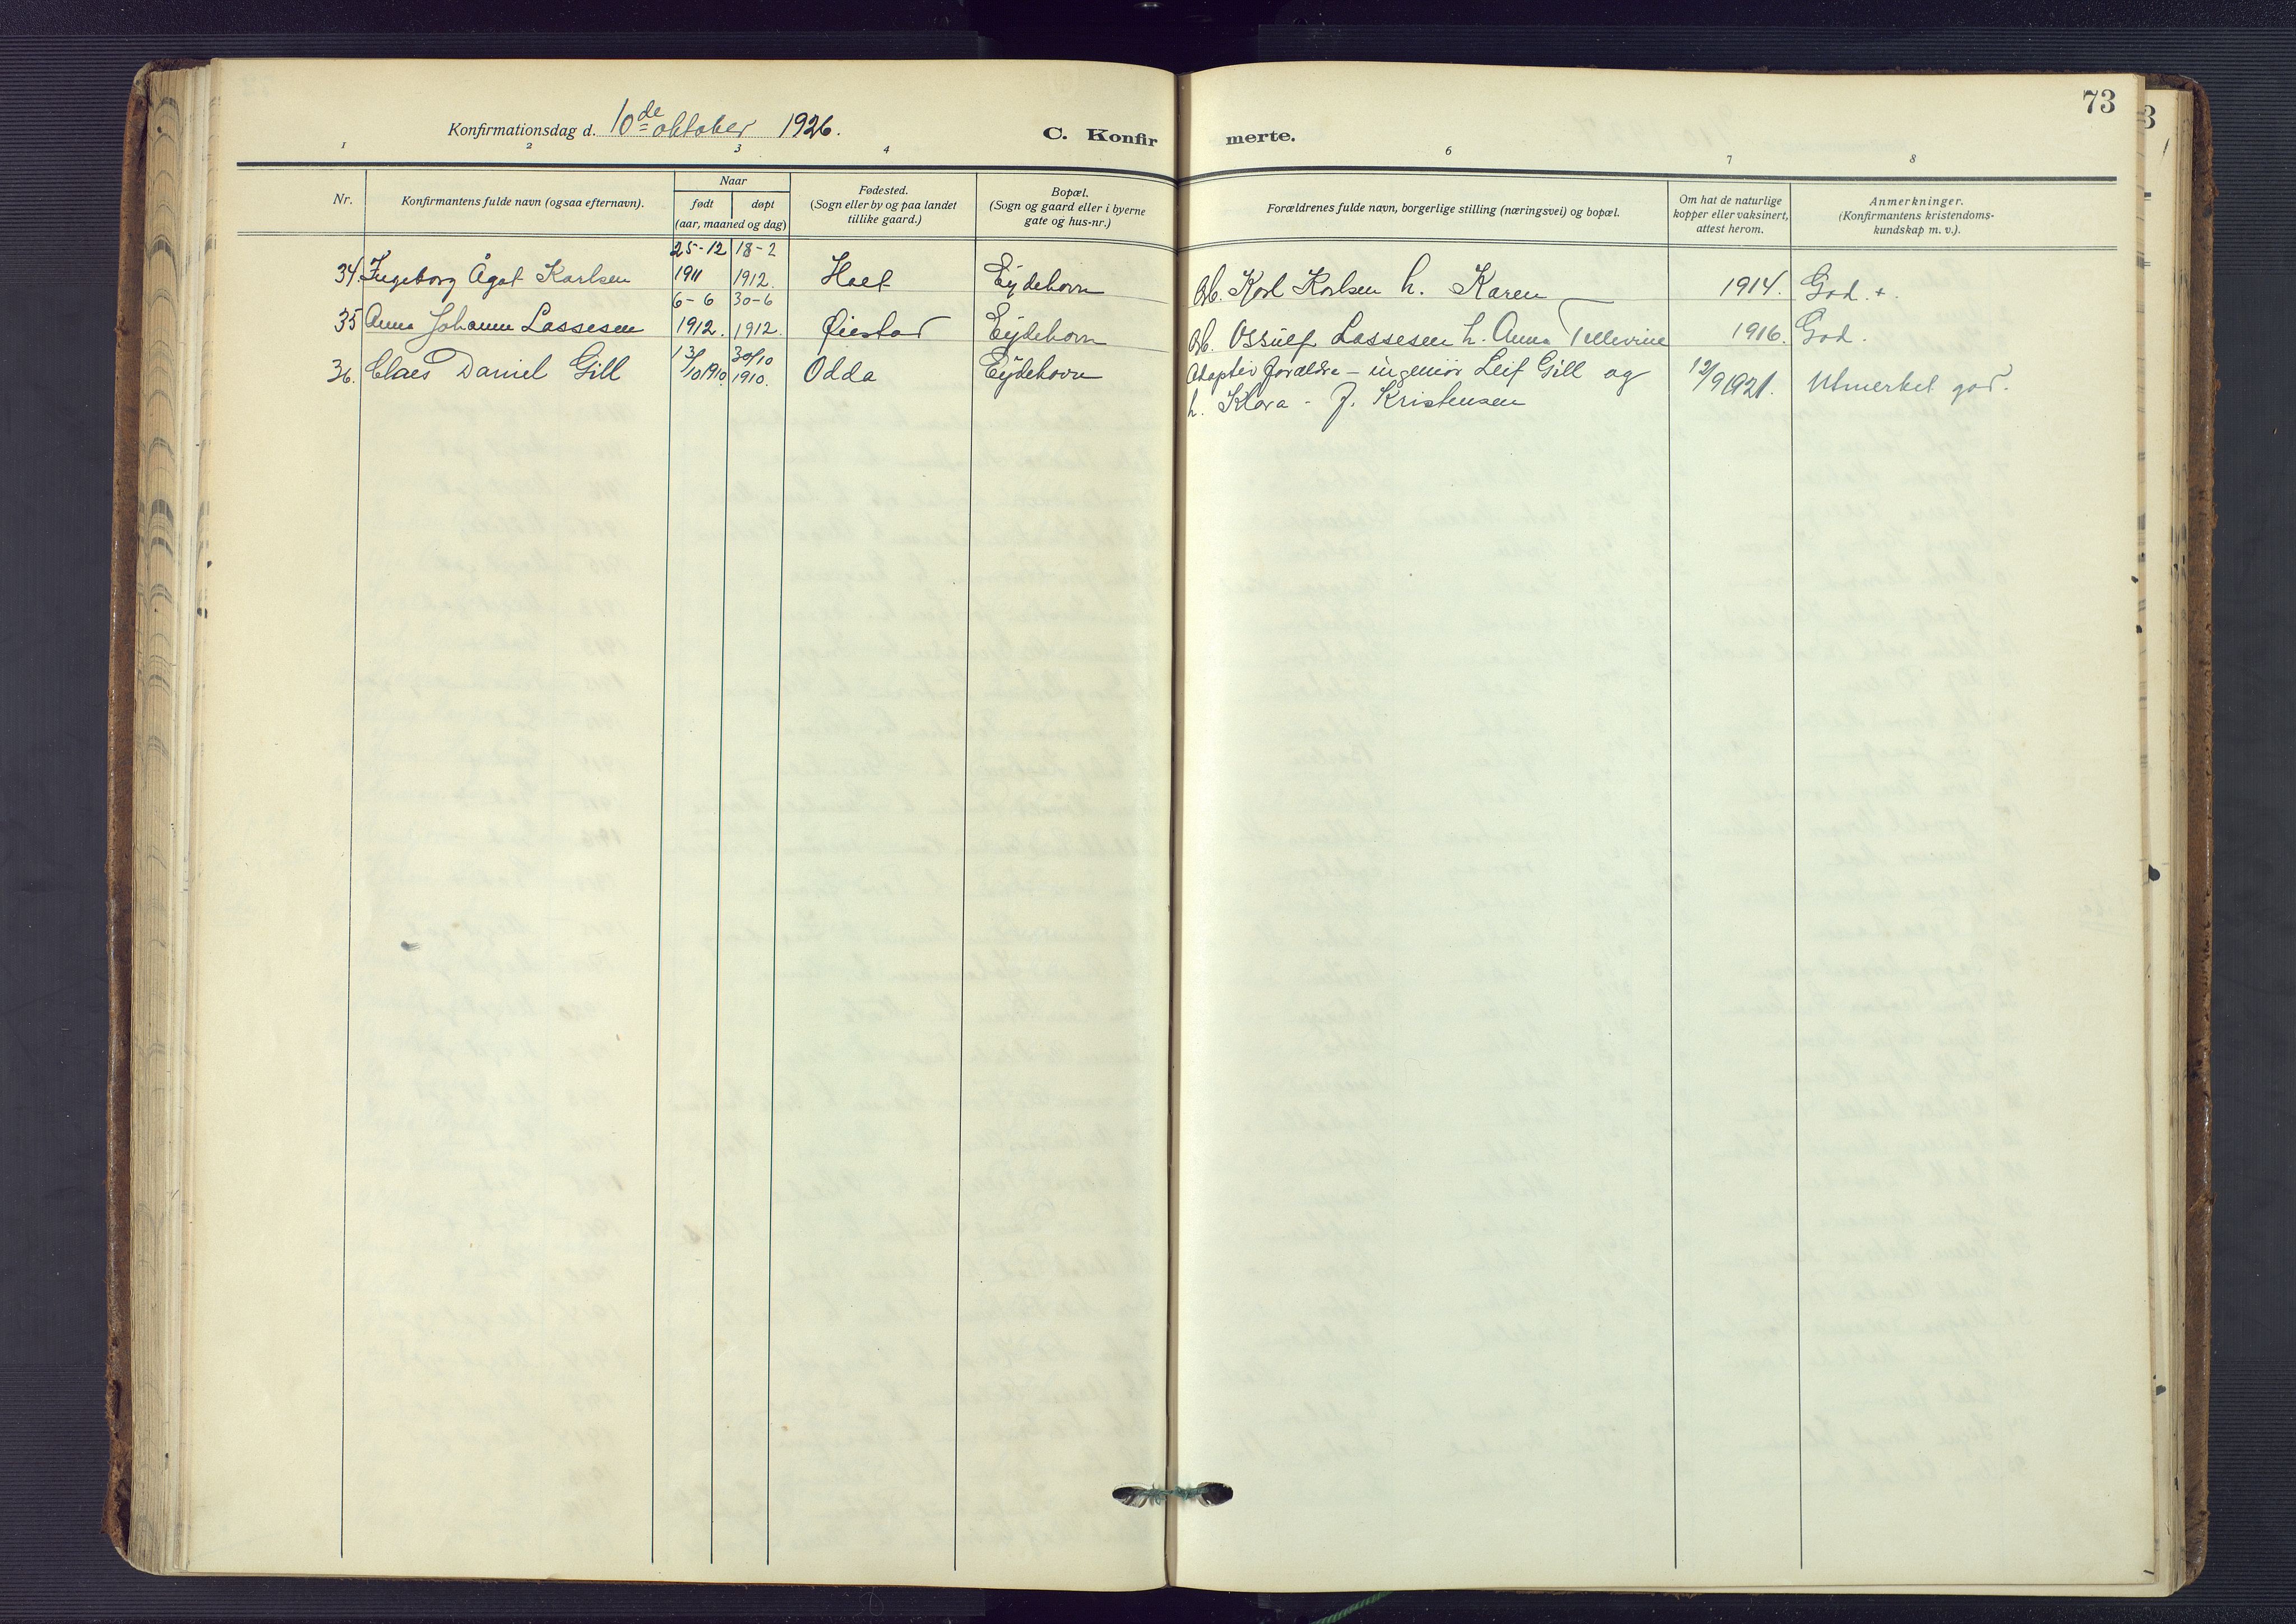 73
Konfirmationsdag d. 10de oktober 1926.
C. Konfirmerte.
1 2 3 4 6 7 8
Nr.
Konfirmantens fulde navn (ogsaa efternavn).
Naar
født døpt
(aar, maaned og dag)
Fødested.
(Sogn eller by og paa landet
tillike gaard.)
Bopæl.
(Sogn og gaard eller i byerne
gate og hus-nr.)
Forældrenes fulde navn, borgerlige stilling (næringsvei) og bopæl.
Om hat de naturlige
kopper eller vaksinert,
attest herom.
Anmerkninger.
(Konfirmantens kristendoms-
kundskap m. v.).
25-12 18-2
34. Ingeborg Ågot Karlsen 1911 1912. Holt Eydehavn Arb. Karl Karlsen h. Karen 1914. God. +.
6-6 30-6
35 Anna Johanne Lassesen 1912. 1912. Øiestad Eydehavn Arb. Ossulf Lassesen h. Anna Tellevine 1916. God.
36. Claes Daniel Gill 13/10 1910. 30/10 1910. Odda Eydehavn Adoptiv forældre - ingeniør Leif Gill og 12/9 1921. Utmerket god.
h. Klara - f. Kristensen